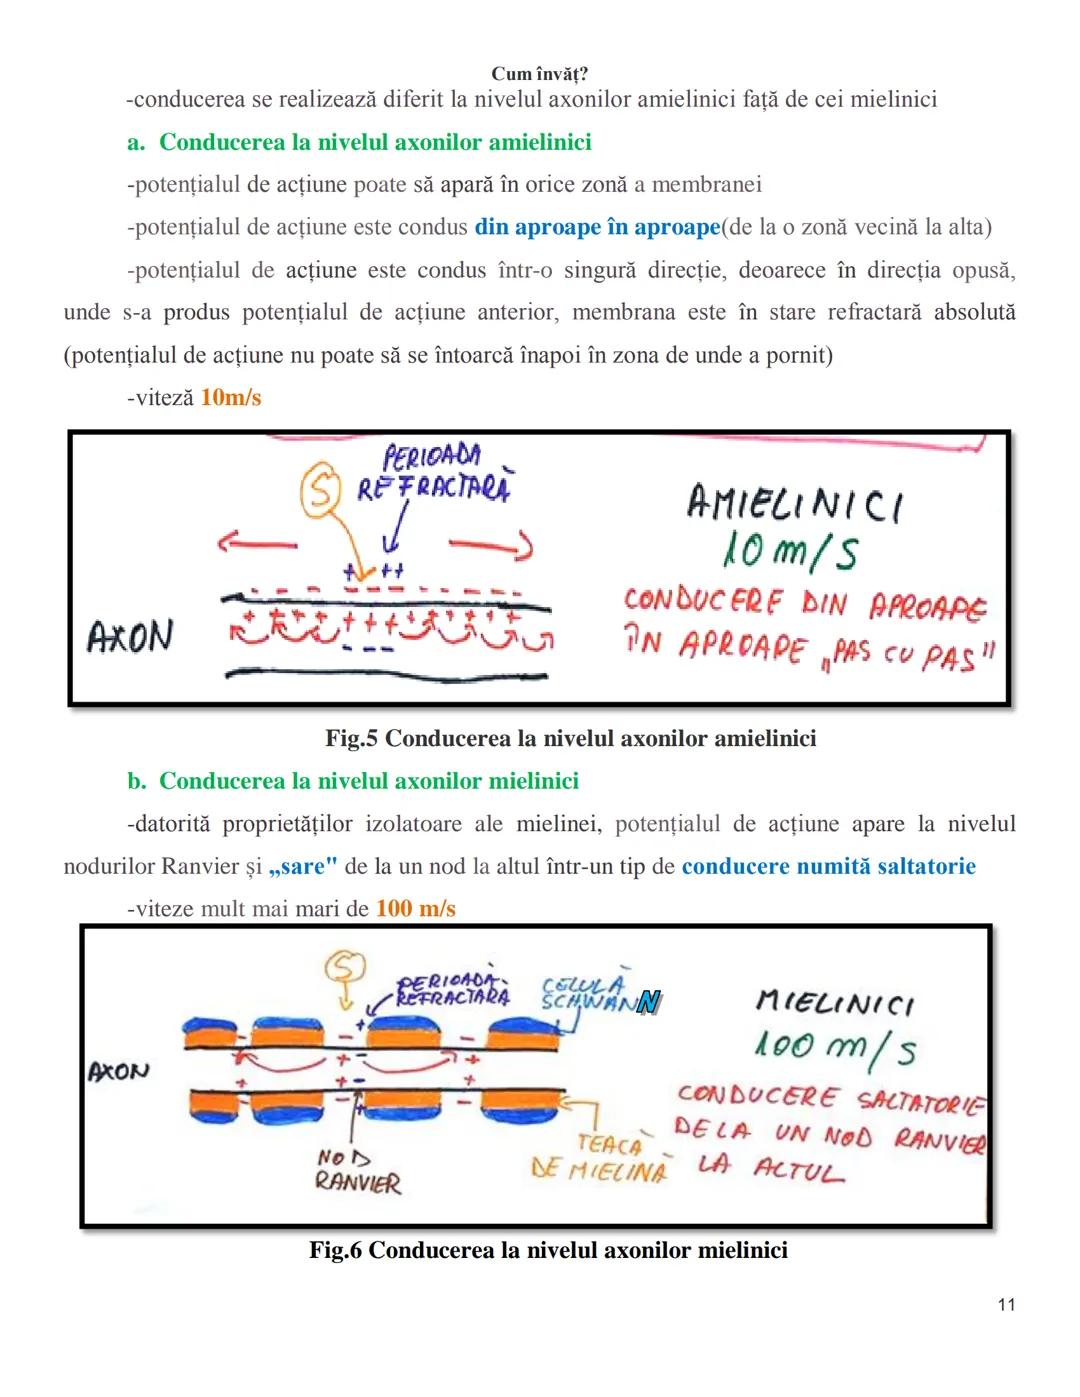 Cum învăț?
-conducerea se realizează diferit la nivelul axonilor amielinici față de cei mielinici
a. Conducerea la nivelul axonilor amielinici
-potențialul de acțiune poate să apară în orice zonă a membranei
-potențialul de acțiune este condus din aproape în aproape(de la o zonă vecină la alta)
-potențialul de acțiune este condus într-o singură direcție, deoarece în direcția opusă,
unde s-a produs potențialul de acțiune anterior, membrana este în stare refractară absolută
(potențialul de acțiune nu poate să se întoarcă înapoi în zona de unde a pornit)
-viteză 10m/s
PERIOADA
REFRACTARĂ
S
AXON
AMIELINICI
10 m/s
CONDUCERE DIN APROAPE
ÎN APROAPE „PAS CU PAS"
Fig.5 Conducerea la nivelul axonilor amielinici
b. Conducerea la nivelul axonilor mielinici
-datorită proprietăților izolatoare ale mielinei, potențialul de acțiune apare la nivelul
nodurilor Ranvier și „sare" de la un nod la altul într-un tip de conducere numită saltatorie
-viteze mult mai mari de 100 m/s
S
PERIOADĂ
REFRACTARĂ
CELULĂ
SCHWANN
AXON
NOD
RANVIER
TEACĂ
DE MIELINĂ
MIELINICI
100 m/s
CONDUCERE SALTATORIE
DE LA UN NOD RANVIER
LA ALTUL
Fig.6 Conducerea la nivelul axonilor mielinici
11